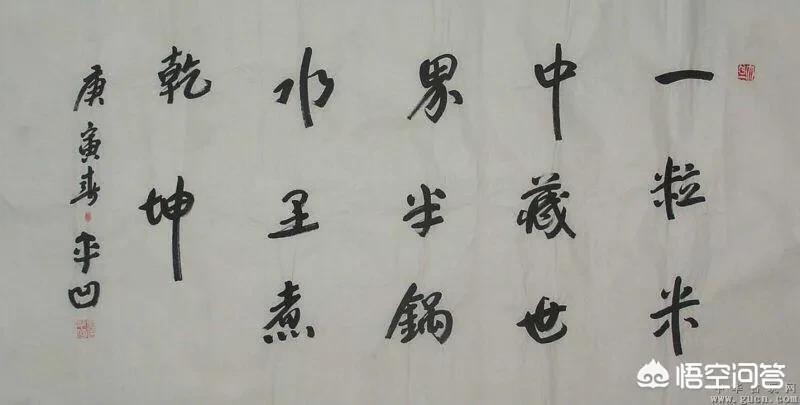 一粒米
中藏世
界半鍋
水里煮
乾坤
庚寅春 平凹
悟空问答
www.gucn.com